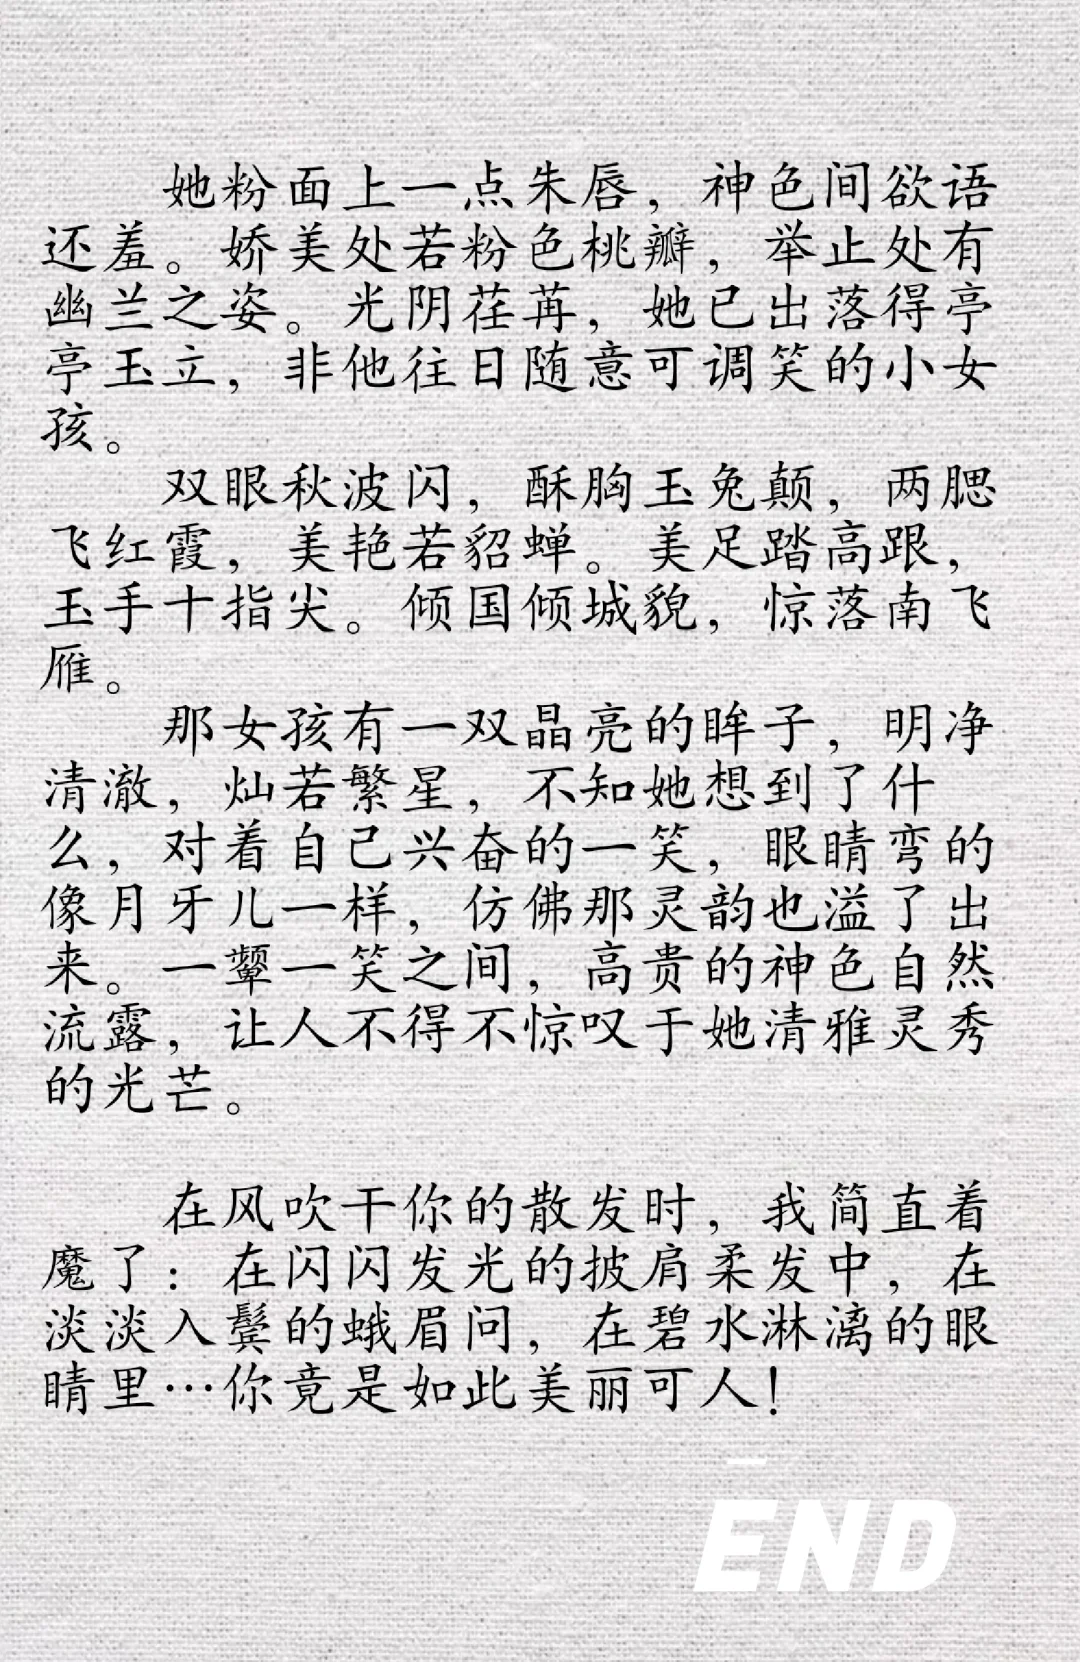 她粉面上一点朱唇，神色间欲语
还羞。娇美处若粉色桃瓣，举止处有
幽兰之姿。光阴荏苒，她已出落得亭
亭玉立，非他往日随意可调笑的小女
孩。
双眼秋波闪，酥胸玉兔颠，两腮
飞红霞，美艳若貂蝉。美足踏高跟，
玉手十指尖。倾国倾城貌，惊落南飞
雁。
那女孩有一双晶亮的眸子，明净
清澈，灿若繁星，不知她想到了什
么，对着自己兴奋的一笑，眼睛弯的
像月牙儿一样，仿佛那灵韵也溢了出
来。一颦一笑之间，高贵的神色自然
流露，让人不得不惊叹于她清雅灵秀
的光芒。
在风吹干你的散发时，我简直着
魔了：在闪闪发光的披肩柔发中，在
淡淡入鬓的蛾眉问，在碧水淋漓的眼
睛里…你竟是如此美丽可人！
END